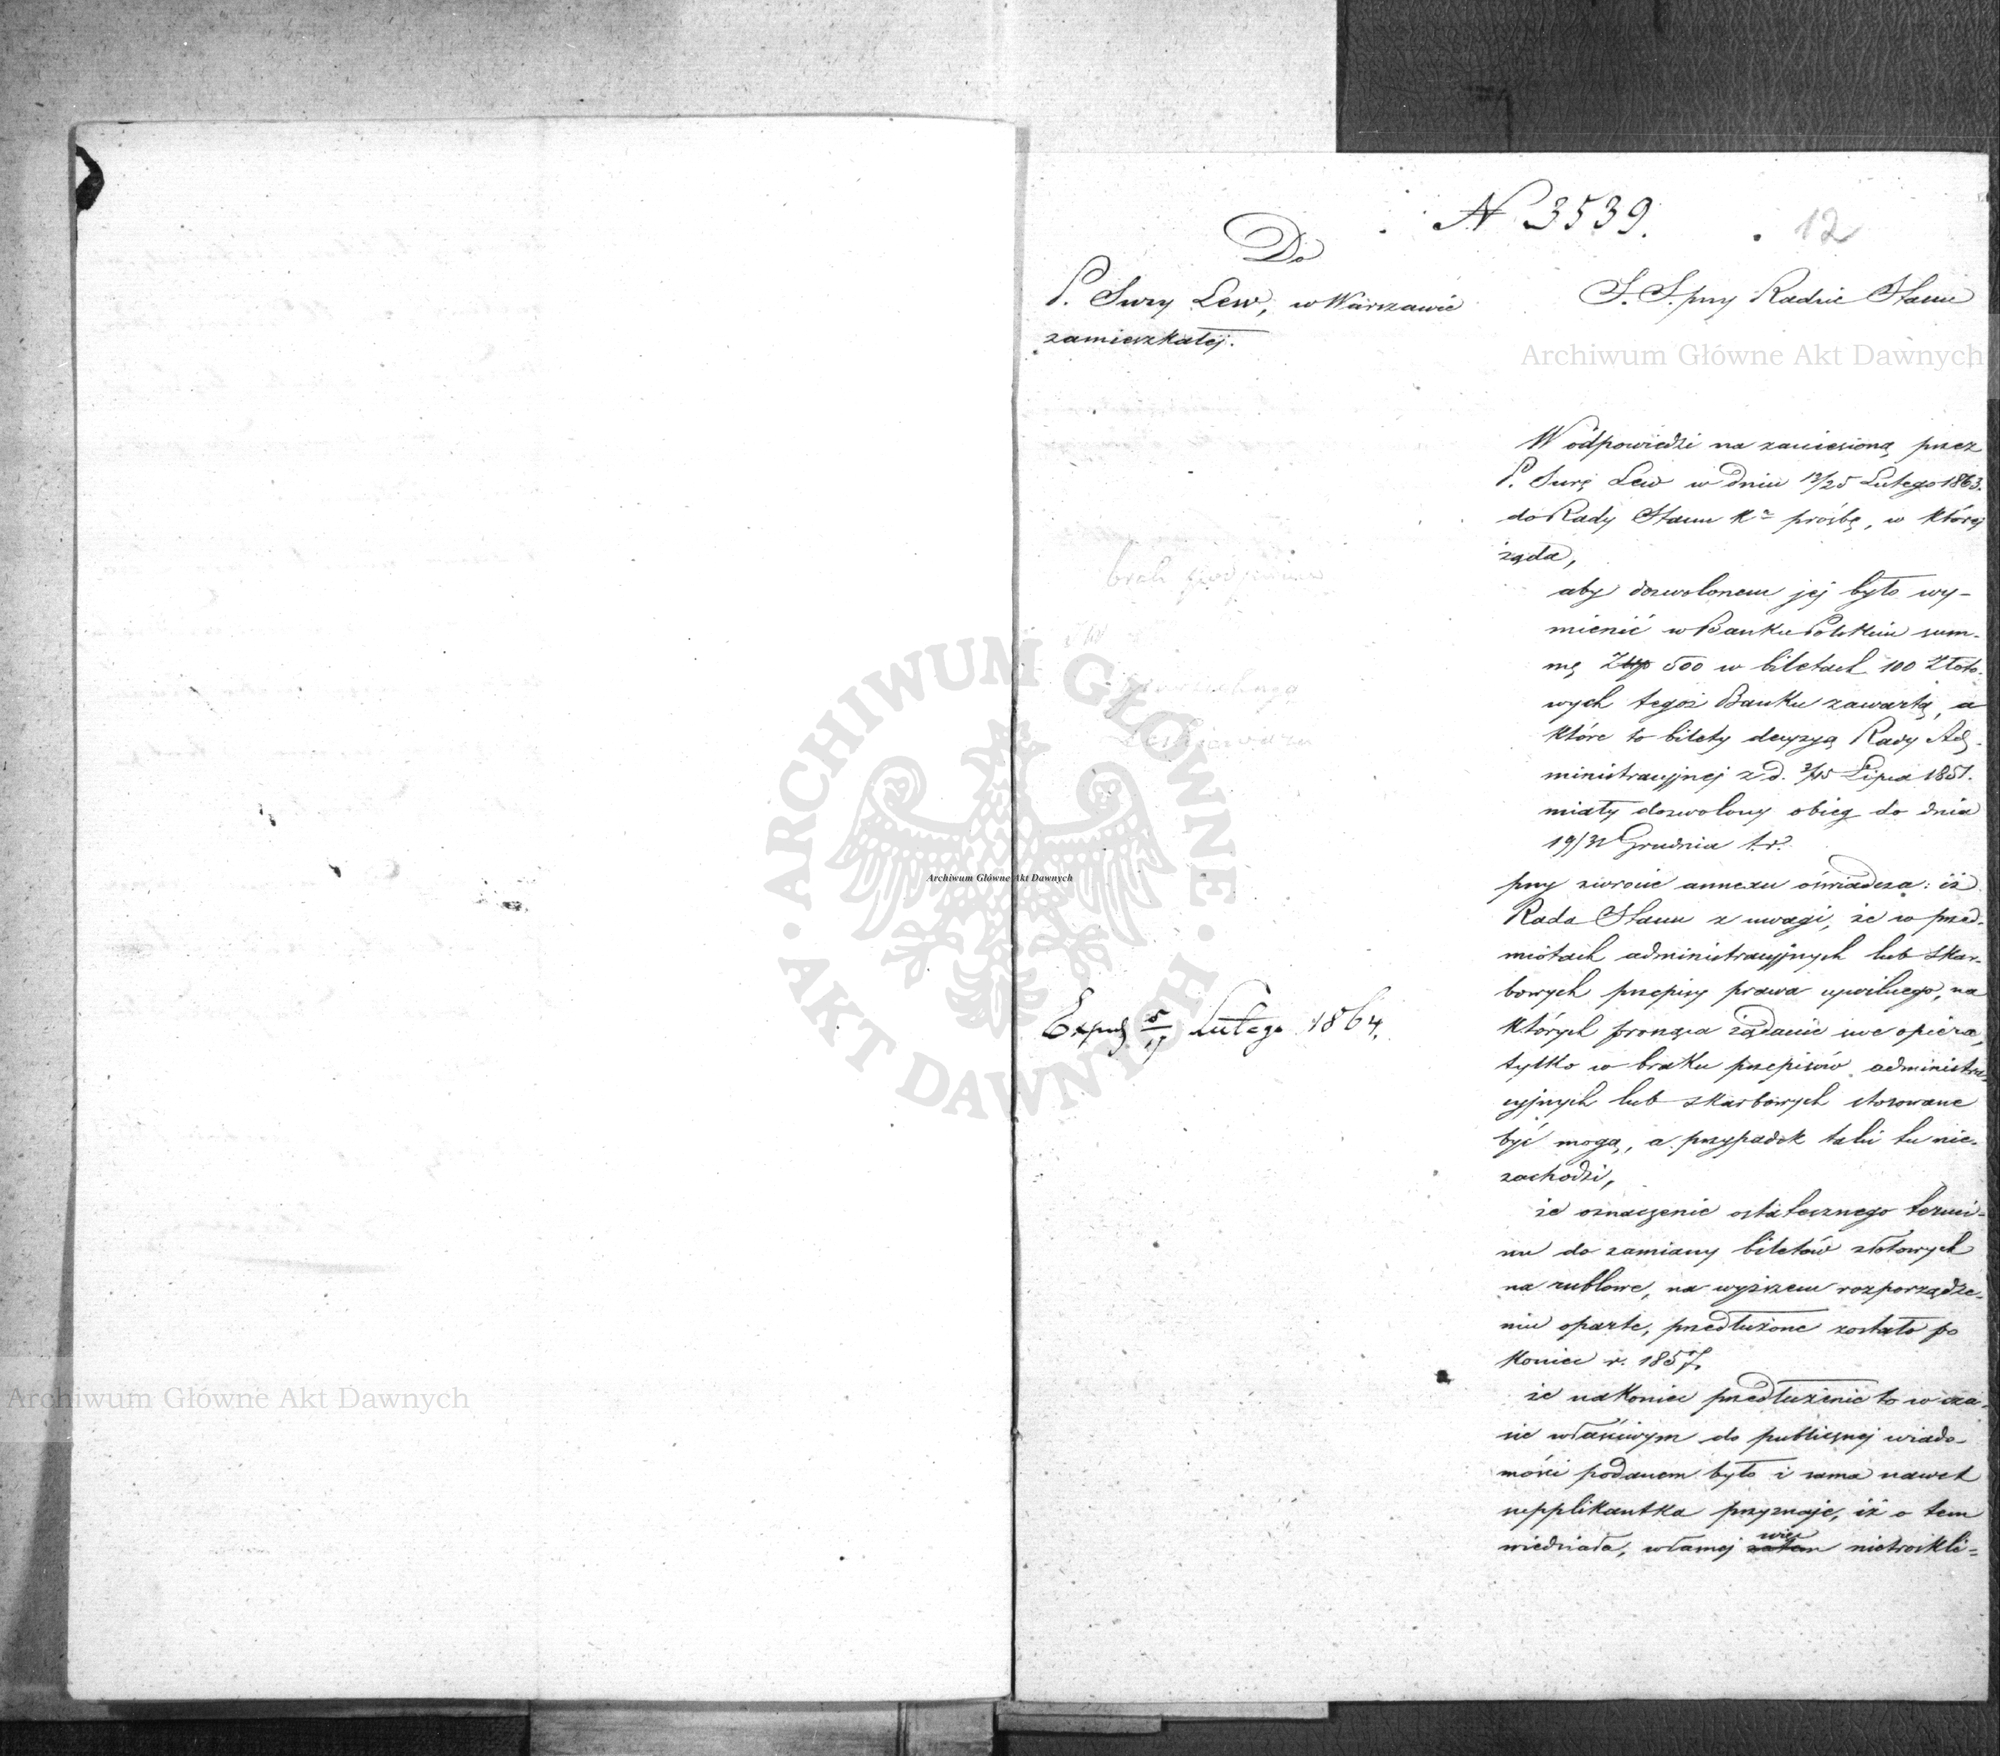 N 3539.
12
Do
P. Sury Lew, w Warszawie
zamieszkałej.
S. S. przy Radzie Stanu
Archiwum Główne Akt Dawnych
W odpowiedzi na zaniesioną przez
P. Surę Lew w dniu 13/25 Lutego 1863.
do Rady Stanu Kr prośbę, w której
żąda,
aby dozwolonem jej było wy-
mienić w Banku Polskim sum-
mę Złp 500 w biletach 100 Złoto-
wych tegoż Banku zawartą, a
które to bilety decyzyą Rady Ad-
ministracyjnej z d. 3/15 Lipca 1851.
miały dozwolony obieg do dnia
19/31 Grudnia t. r.
przy zwrocie annexu oświadcza: iż
Rada Stanu z uwagi, że w przed-
miotach administracyjnych lub skar-
bowych przepisy prawa cywilnego, na
których prosząca żądanie swe opiera,
tylko w braku przepisów administra-
cyjnych lub skarbowych stosowane
być mogą, a przypadek taki tu nie-
zachodzi,
że oznaczenie ostatecznego termi-
nu do zamiany biletów złotowych
na rublowe, na wyższem rozporządze-
niu oparte, przedłużone zostało po
koniec r. 1857.
że nakoniec przedłużenie to w cza-
sie właściwym do publicznej wiado-
mości podanem było i sama nawet
supplikantka przyznaje, iż o tem
wiedziała, własnej więc zatem nietroskli=
brak
Exped 5/17 Lutego 1864.
ARCHIWUM GŁÓWNE AKT DAWNYCH
Archiwum Główne Akt Dawnych
Archiwum Główne Akt Dawnych